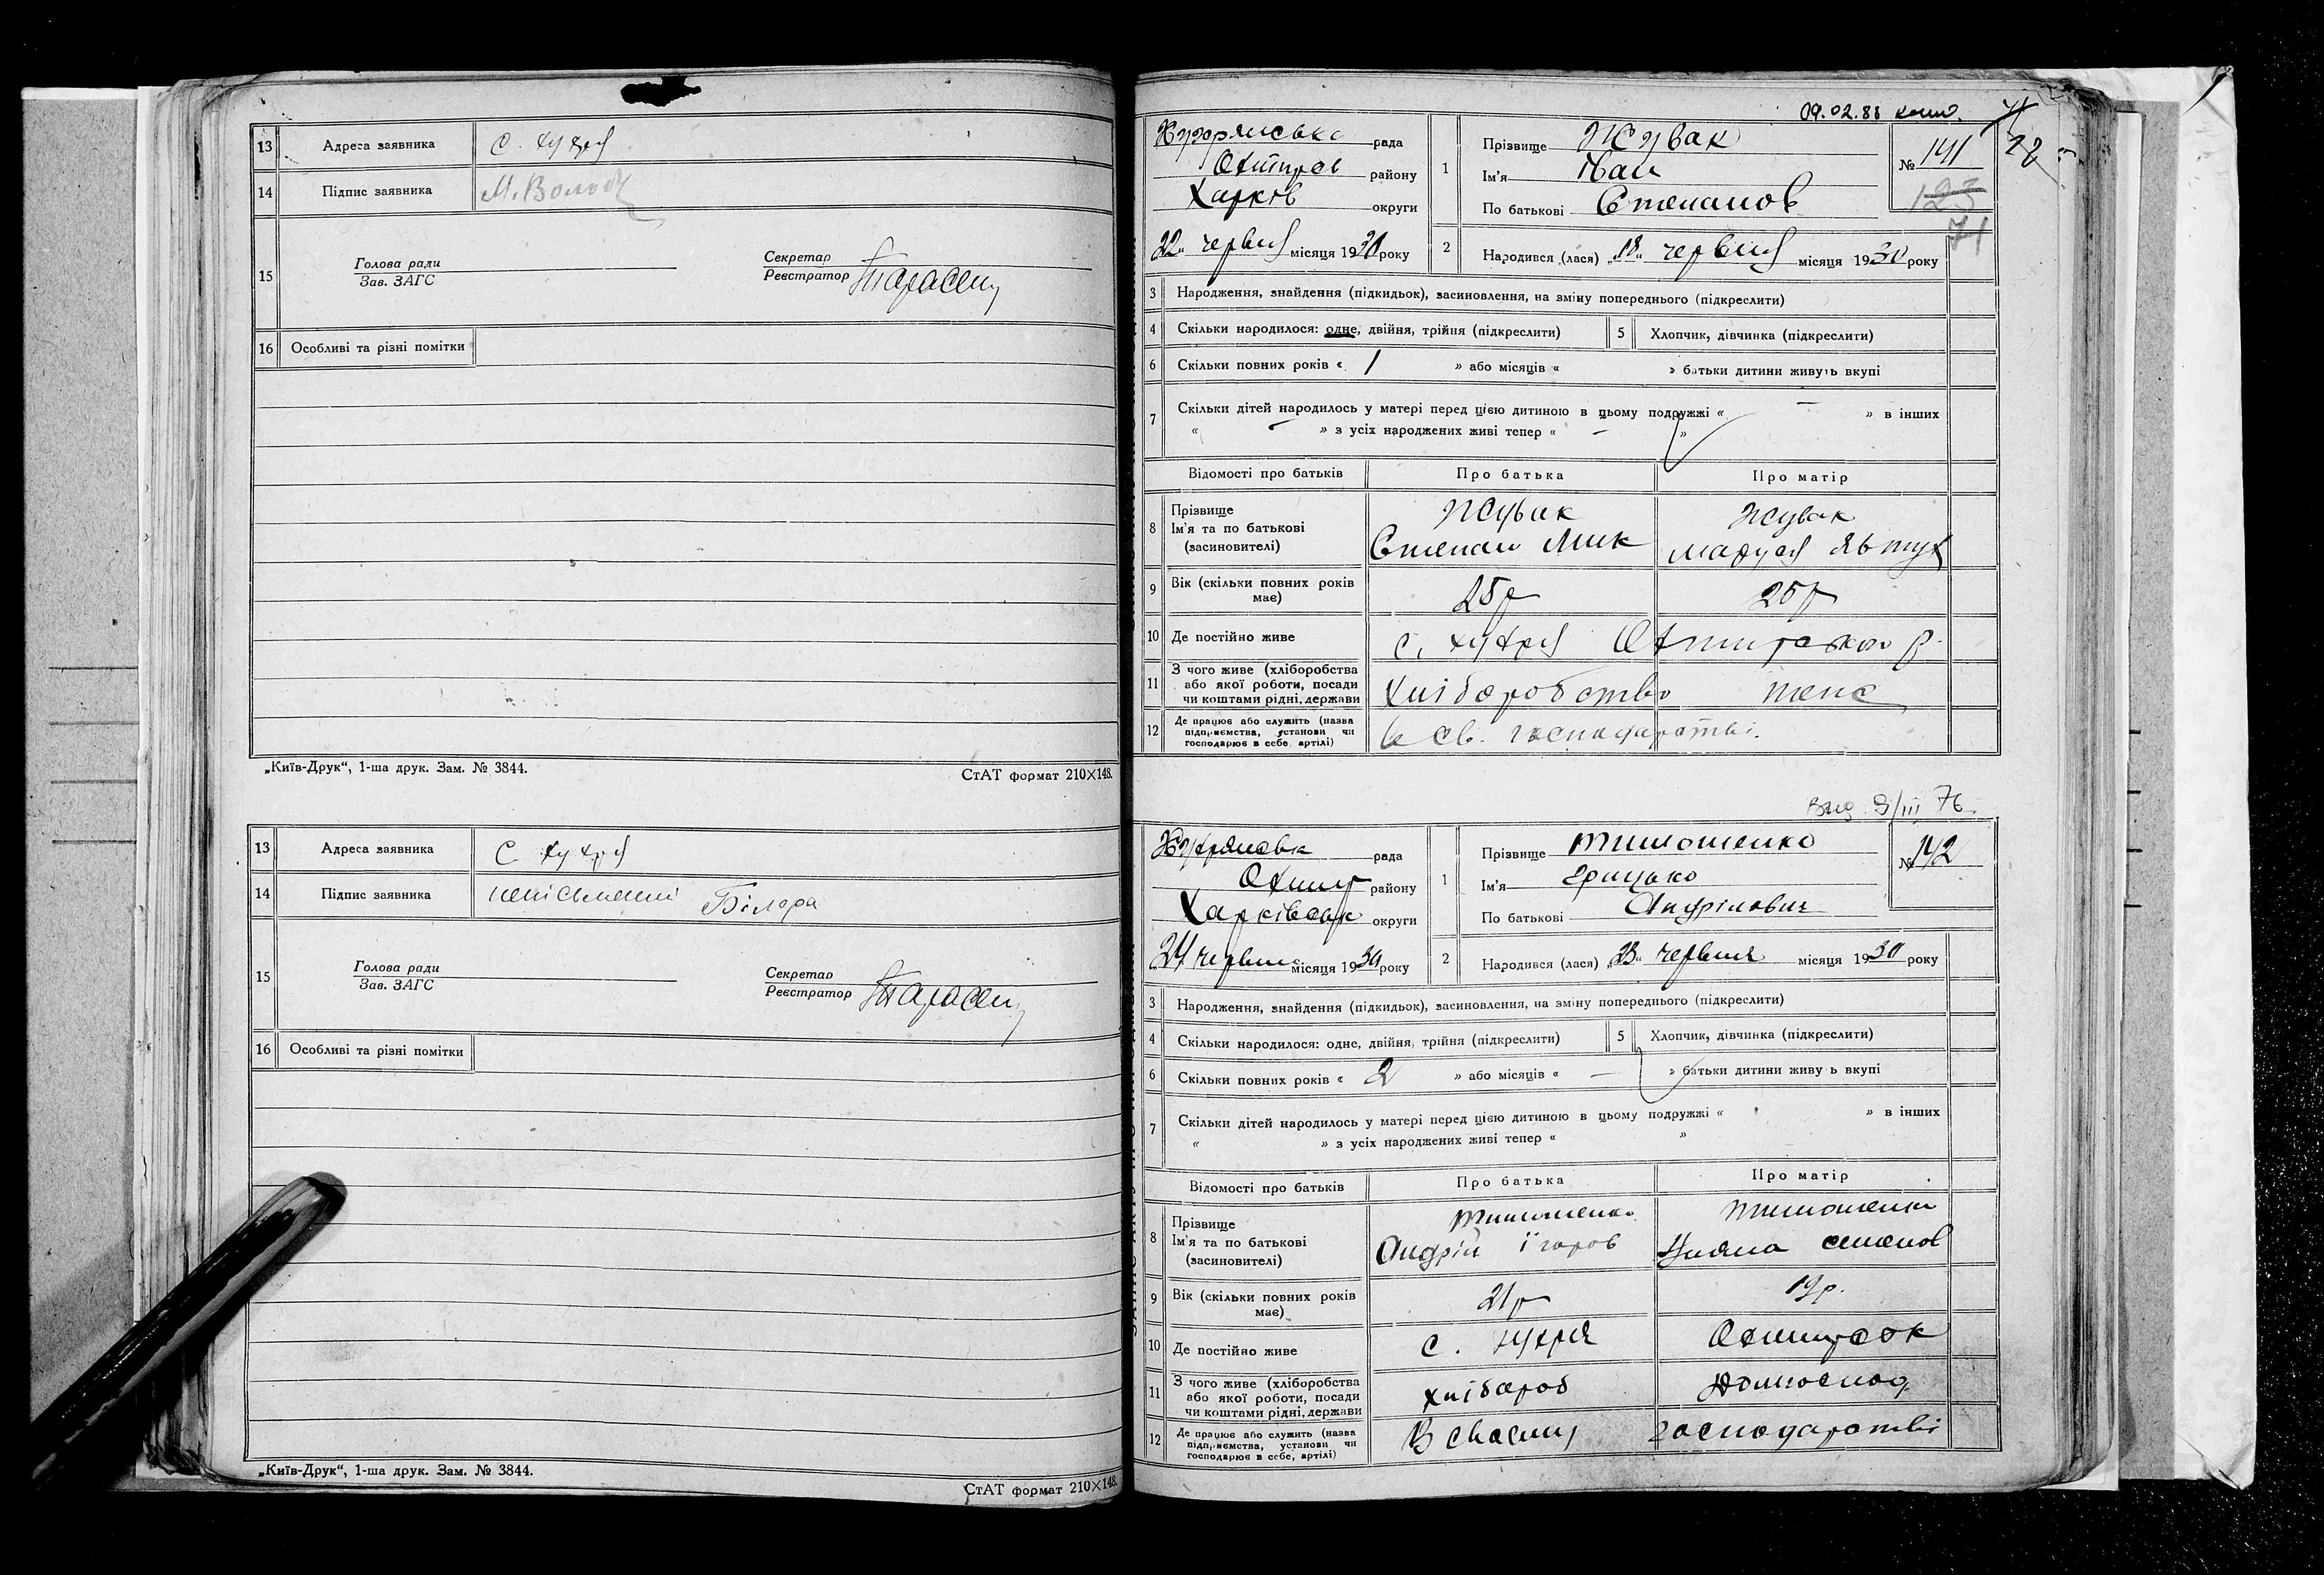 13 Адреса заявника с. Хухря
14 Підпис заявника М. Волод
15 Голова ради
Зав. ЗАГС
Секретар
Реєстратор Тарасен
16 Особливі та різні помітки
„Київ-Друк“, 1-ша друк. Зам. № 3844.
СтАТ формат 210×148.
13 Адреса заявника с. Хухря
14 Підпис заявника неписьменні Білера
15 Голова ради
Зав. ЗАГС
Секретар
Реєстратор Тарасен
16 Особливі та різні помітки
„Київ-Друк“, 1-ша друк. Зам. № 3844.
СтАТ формат 210×148.
09.02.88
Хухрянська рада
Охтирсв району
Харків округи
„22„ червня місяця 1930 року
1 Прізвище Жувак
Ім'я Іван
По батькові Степанов
№ 141
123
71
22
2 Народився (лася) „18„ червня місяця 1930 року
3 Народження, знайдення (підкидьок), засиновлення, на зміну попереднього (підкреслити)
4 Скільки народилося: одне, двійня, трійня (підкреслити) 5 Хлопчик, дівчинка (підкреслити)
6 Скільки повних років « 1 » або місяців « » батьки дитини живуть вкупі
7 Скільки дітей народилось у матері перед цією дитиною в цьому подружжі « — » в інших
« — » з усіх народжених живі тепер « — »
Відомості про батьків Про батька Про матір
8 Прізвище
Ім'я та по батькові
(засиновителі)
Жувак
Степан Мик
Жувак
Маруся Явтух
9 Вік (скільки повних років має) 25р 25р
10 Де постійно живе с. Хухря Охтирського р.
11 З чого живе (хліборобства
або якої роботи, посади
чи коштами рідні, держави
Хліборобство теж
12 Де працює або служить (назва
підприємства, установи чи
господарює в себе, артілі)
в св. господарстві.
Вид. 9/III 76.
Хухрянськ рада
Охтир району
Харківськ округи
„24 червня місяця 1930 року
1 Прізвище Тимошенко
Ім'я Грицько
По батькові Андрійович
№ 142
2 Народився (лася) „23„ червня місяця 1930 року
3 Народження, знайдення (підкидьок), засиновлення, на зміну попереднього (підкреслити)
4 Скільки народилося: одне, двійня, трійня (підкреслити) 5 Хлопчик, дівчинка (підкреслити)
6 Скільки повних років « 2 » або місяців « — » батьки дитини живу ь вкупі
7 Скільки дітей народилось у матері перед цією дитиною в цьому подружжі « » в інших
« » з усіх народжених живі тепер « »
Відомості про батьків Про батька Про матір
8 Прізвище
Ім'я та по батькові
(засиновителі)
Тимошенко
Андрій Ігоров
Тимошенко
Уляна Семенов
9 Вік (скільки повних років має) 21р 19р.
10 Де постійно живе с. Хухря Охтирськ
11 З чого живе (хліборобства
або якої роботи, посади
чи коштами рідні, держави
хлібороб домоспод
12 Де працює або служить (назва
підприємства, установи чи
господарює в себе, артілі)
В своєму господарстві